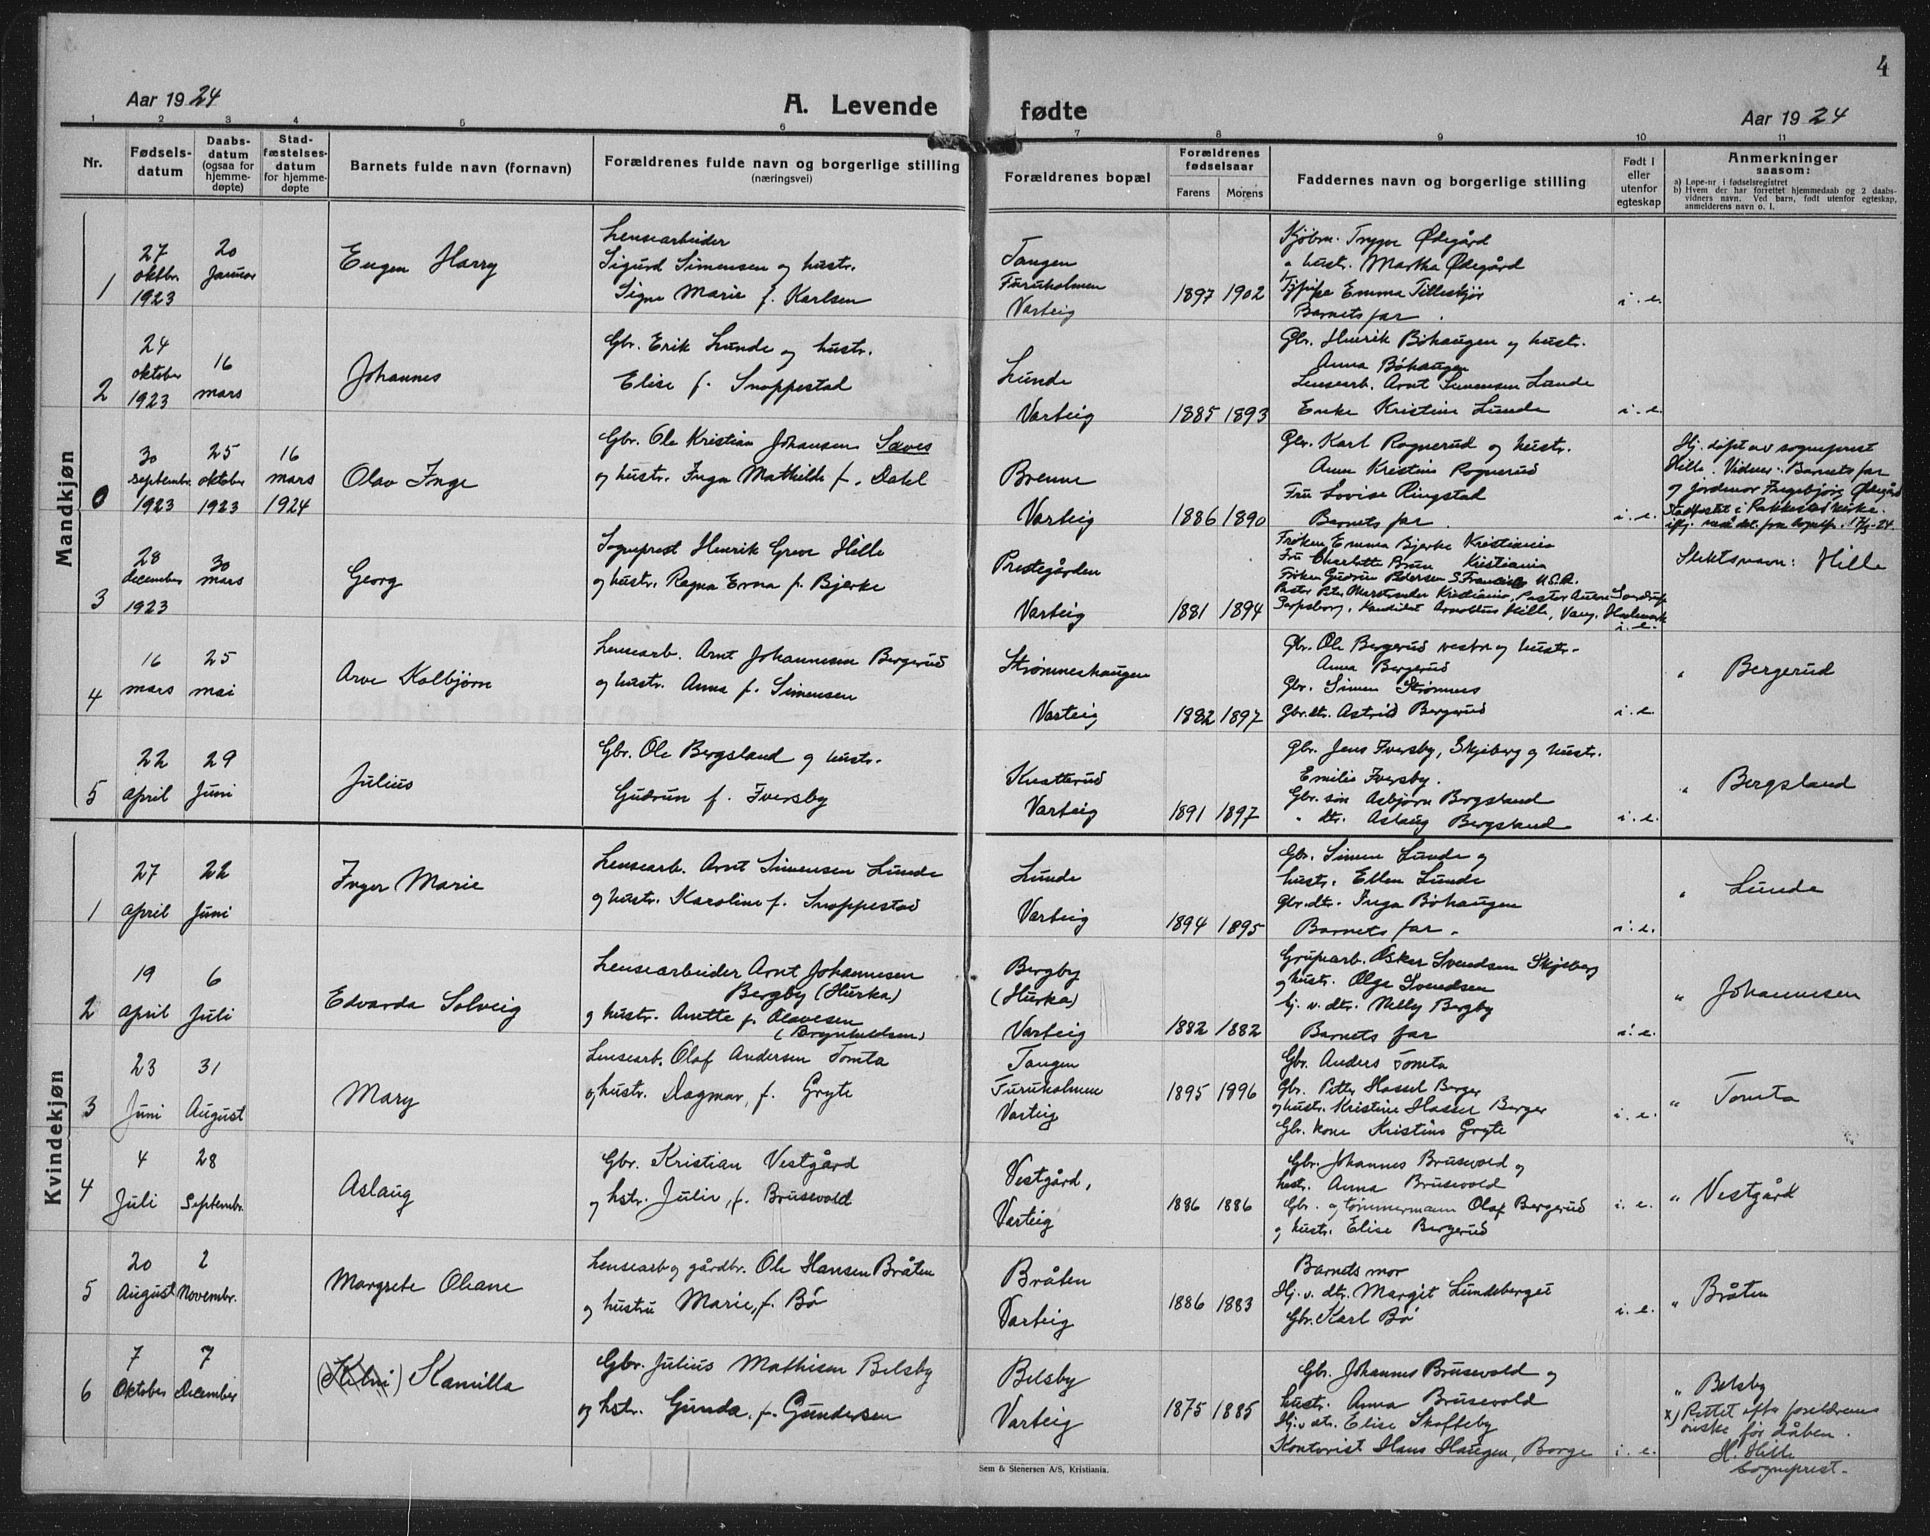 4
Aar 1924
A. Levende fødte
Aar 1924
1 2 3 4 5 6 7 8 9 10 11
Nr.
Fødsels-
datum
Daabs-
datum
(ogsaa for
hjemme-
døpte)
Stad-
fæstelses-
datum
for hjemme-
døpte
Barnets fulde navn (fornavn)
Forældrenes fulde navn og borgerlige stilling
(næringsvei)
Forældrenes bopæl
Forældrenes
fødselsaar
Farens
Morens
Faddernes navn og borgerlige stilling
Født i
eller
utenfor
egteskap
Anmerkninger
saasom:
a) Løpe-nr i fødselsregistret
b) Hvem der har forrettet hjemmedaab og 2 daabs-
vidners navn. Ved barn, født utenfor egteskap,
anmelderens navn o. l.
Mandkjøn
1
27 oktbr. 1923
20 Januar
Eugen Harry
Lensearbeider
Sigurd Simensen og hustr.
Signe Marie f. Karlsen
Tangen
Furuholmen
Varteig
1897 1902
Kjøbm. Trygve Ødegård
" hustr. Martha Ødegård
Emma Tilleskjør
Barnets far.
i. e.
2
24 oktober 1923
16 mars
Johannes
Gbr. Erik Lunde og hustr.
Elise f. Snoppestad
Lunde
Varteig
1885 1893
Gbr. Henrik Böhaugen og hustr.
Anna Böhaugen
Lensearb. Arnt Simensen Lunde
Enke Kristine Lunde
i. e.
0
30 septembr. 1923
25 oktober 1923
16 mars 1924
Olav Inge
Gbr. Ole Kristian Johansen Sæves
og hustr. Inga Mathilde f. Datel
Brenne
Varteig
1886 1890
Gbr. Karl Rognerud og hustr.
Anne Kristine Rognerud
Fru Lovise Ringstad
Barnets far.
i. e.
Hj. døpt av sogneprest
Hille. Vidner: Barnets far
og jordmor Ingebjørg Ødegård
Stadfestet i Rakkestad kirke.
3
28 december 1923
30 mars
Georg
Sogneprest Henrik Greve Hille
og hustr. Ragna Erna f. Bjerke
Prestegården
Varteig
1881 1894
Frøken Emma Bjerke Kristiania
Fru Charlotte Brun Kristiania
Frøken Gudrun Pedersen S. Francisko U.S.A.
Pastor Peter Marstrander Kristiania, Pastor Anton Sverdrup
Sarpsborg, Kandidat Arnoldus Hille, Vang, Hedemark
i. e.
Slektsnavn: Hille
4
16 mars
25 mai
Arve Kolbjørn
Lensearb. Arnt Johannesen Bergerud
og hustr. Anna f. Simensen
Strømneshaugen
Varteig
1882 1897
Gbr. Ole Bergerud vestre og hustr.
Anna Bergerud
Gbr. Simen Strømnes
Gbr.dtr. Astrid Bergerud
i. e.
" Bergerud
5
22 april
29 Juni
Julius
Gbr. Ole Bergsland og hustr.
Gudrun f. Iversby
Knatterud
Varteig
1891 1897
Gbr. Jens Iversby, Skjeberg og hustr.
Emilie Iversby.
Gbr. søn Asbjørn Bergsland
" dtr. Aslaug Bergsland
i. e.
" Bergsland
Kvindekjøn
1
27 april
22 Juni
Inger Marie
Lensearb. Arnt Simensen Lunde
og hustr. Karoline f. Snoppestad
Lunde
Varteig
1894 1895
Gbr. Simen Lunde og
hustr. Ellen Lunde
Gbr.dtr. Inga Bøhaugen
Barnets far.
i. e.
" Lunde
2
19 april
6 Juli
Edvarda Solveig
Lensearbeider Arnt Johannesen
Bergby (Hurka)
og hustr. Anette f. Olavesen
(Brynhildsen)
Bergby
(Hurka)
Varteig
1882 1882
Grubarb. Oskar Svendsen Skjeberg
og hustr. Olga Svendsen
hj. v. dtr. Nelly Bergby
Barnets far
i. e.
" Johannesen
3
23 Juni
31 August
Mary
Lensearb. Olaf Andersen Tomta
og hustr. Dagmar, f. Gryte
Tangen
Furuholmen
Varteig
1895 1996
Gbr. Anders Tomta
Gbr. Petter Hassel Berger
og hustr. Kristine Hassel Berger
Gbr. kone Kristine Gryte
i. e.
" Tomta
4
4 Juli
28 Septembr.
Aslaug
Gbr. Kristian Vestgård
og hstr. Julie, f. Brusevold
Vestgård,
Varteig
1886 1886
Gbr. Johannes Brusevold og
hustr. Anna Brusevold
Gbr. og tømmermann Olaf Bergerud
og hustr. Elise Bergerud
i. e.
" Vestgård
5
20 August
2 Novembr.
Margrete Oleane
Lensearb og gårdbr. Ole Hansen Bråten
og hustru Marie, f. Bö
Bråten
Varteig
1886 1883
Barnets mor
Hj. v. dtr. Margit Lundeberget
Gbr. Karl Bö
i. e.
" Bråten
6
7 Oktober
7 December
Kamilla
Gbr. Julius Mathisen Belsby
og hstr. Gunda, f. Gundersen
Belsby
Varteig
1875 1885
Gbr. Johannes Brusevold og
hustr. Anna Brusevold
Hj. v dtr. Elise Skofteby
Kontorist Hans Haugen, Borge
i. e.
" Belsby
x) Rettet efter foreldrenes
ønske før dåben.
H. Hille
sogneprest.
Sem & Stenersen A/S, Kristiania.